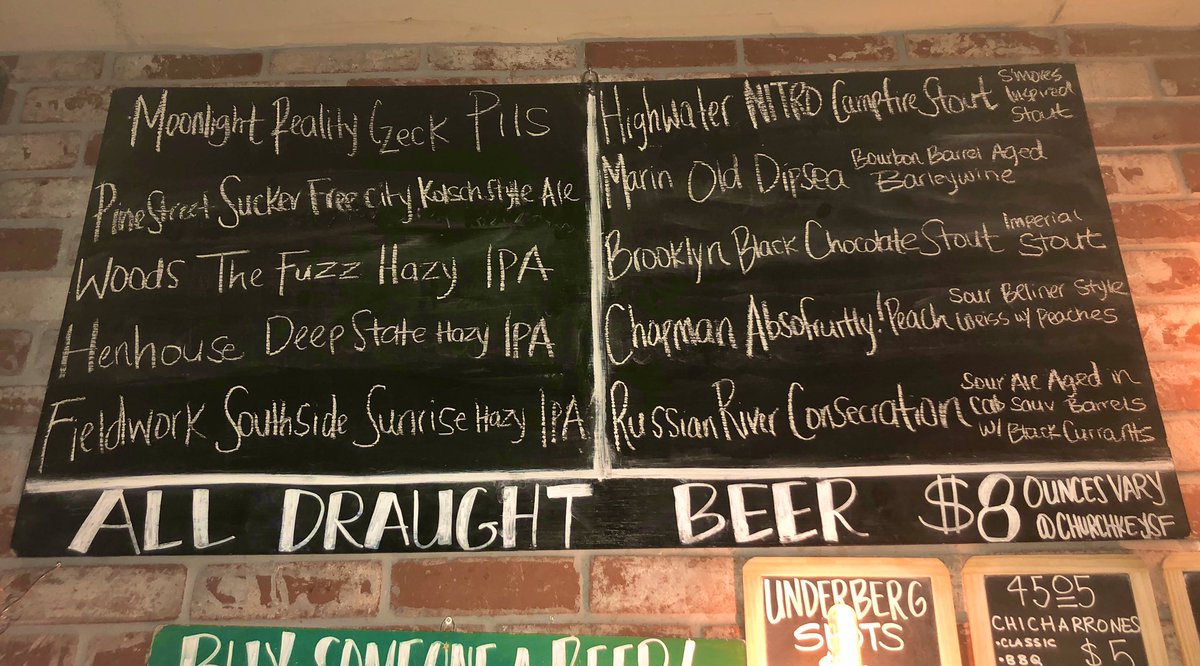 Moonlight Reality Czeck Pils
Pine Street Sucker Free city Kolsch style Ale
Woods The Fuzz Hazy IPA
Henhouse Deep State Hazy IPA
Fieldwork Southside Sunrise Hazy IPA
Highwater NITRO Campfire Stout S'mores
Inspired
Stout
Marin Old Dipsea Bourbon Barrel Aged
Barleywine
Brooklyn Black Chocolate Stout Imperial
Stout
Chapman Absofruitly! Peach Sour Beliner Style
Weiss w/ peaches
Russian River Consecration Sour Ale Aged in
Cab Sauv Barrels
w/ Black Currants
ALL DRAUGHT BEER $8 OUNCES VARY
@CHURCHKEYSF
BUY SOMEONE A BEER!
UNDERBERG
SHOTS
4505
CHICHARRONES
•CLASSIC
•BBQ
$5